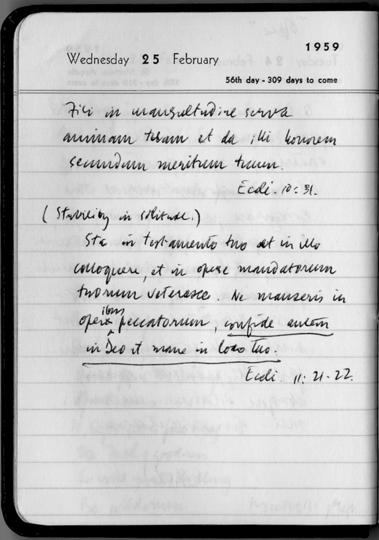 1959
Wednesday 25 February
56th day - 309 days to come
Fili in mansuetudine serva
animam tuam et da illi honorem
secundum meritum tuum.
Eccli. 10:31.
(Stability in solitude.)
Sta in testamento tuo et in illo
colloquere, et in opere mandatorum
tuorum veterasce. Ne manseris in
operibus peccatorum, confide autem
in Deo et mane in loco tuo.
Eccli 11:21-22.